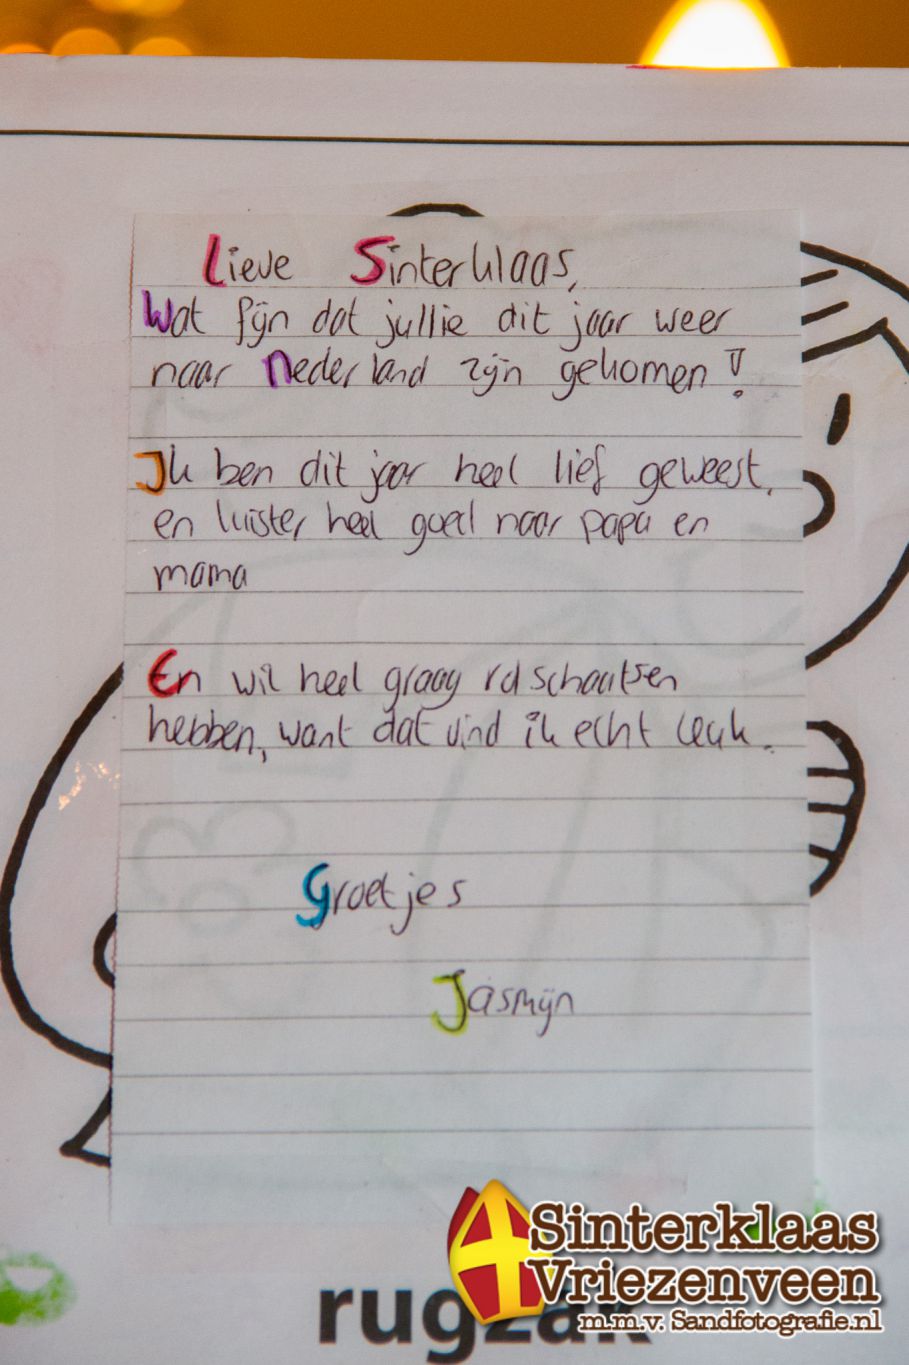 Lieve Sinterklaas,
Wat fijn dat jullie dit jaar weer
naar Nederland zijn gekomen!
Ik ben dit jaar heel lief geweest,
en luister heel goed naar papa en
mama
En wil heel graag rolschaatsen
hebben, want dat vind ik echt leuk.
Groetjes
Jasmijn
rugzak
Sinterklaas
Vriezenveen
m.m.v. Sandfotografie.nl